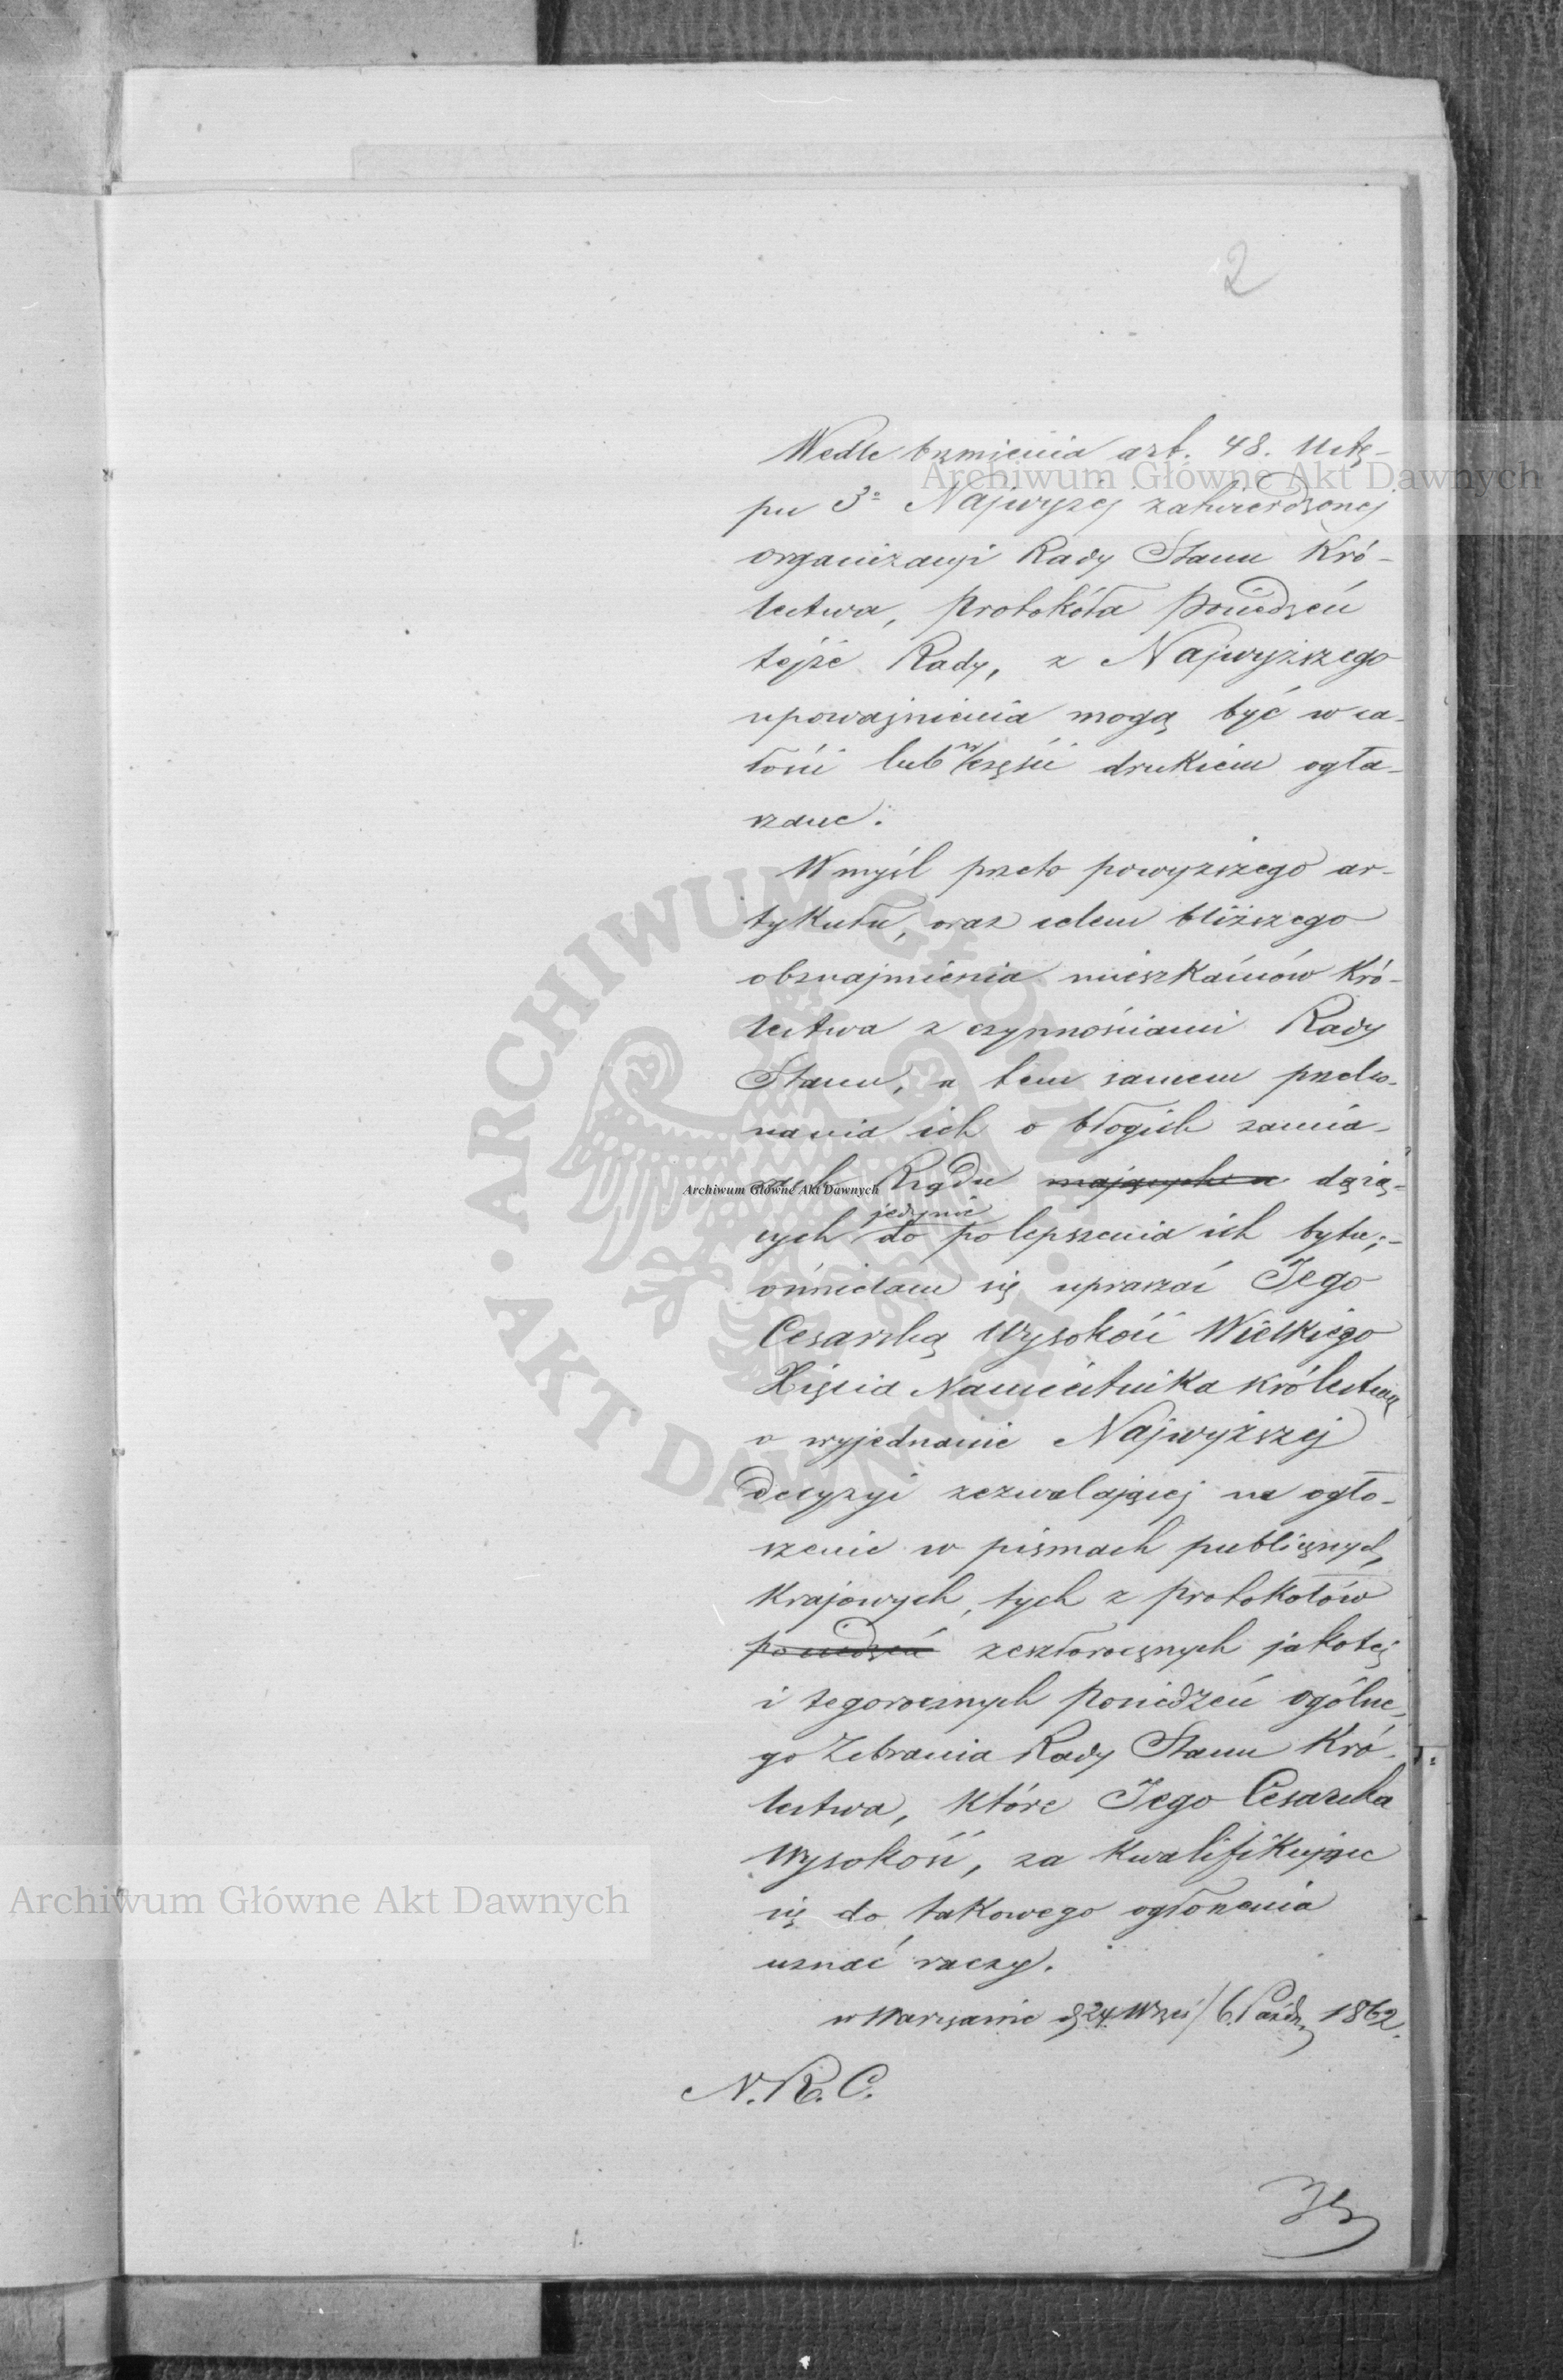 2
Wedle brzmienia art. 48. Ustę-
pu 3º Najwyżej zatwierdzonej
organizacyi Rady Stanu Kró-
lestwa, protokóła posiedzeń
tejże Rady, z Najwyższego
upoważnienia mogą być w ca-
łości lub w części drukiem ogła-
szane.
W myśl przeto powyższego ar-
tykułu, oraz celem bliższego
obznajmienia mieszkańców Kró-
lestwa z czynnościami Rady
Stanu, a tem samem przeko-
nania ich o błogich zamia-
rach Rządu mających a dążą-
cych jedynie do polepszenia ich bytu;-
ośmielam się upraszać Jego
Cesarską Wysokość Wielkiego
Xięcia Namiestnika Królestwa
o wyjednanie Najwyższej
decyzyi zezwalającej na ogło-
szenie w pismach publicznych
krajowych, tych z protokołów
posiedzeń zeszłorocznych jakoteż
i tegorocznych posiedzeń ogólne-
go Zebrania Rady Stanu Kró-
lestwa, które Jego Cesarska
Wysokość, za kwalifikujące
się do takowego ogłoszenia
uznać raczy.
w Warszawie d. 24 Wrześ/6. Paźdz. 1862.
N. R. C.
Archiwum Główne Akt Dawnych
Archiwum Główne Akt Dawnych
Archiwum Główne Akt Dawnych
ARCHIWUM GŁÓWNE
AKT DAWNYCH